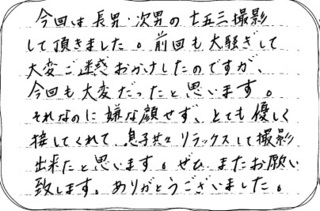 今回は長男・次男の七五三撮影
して頂きました。前回も大騒ぎして
大変ご迷惑おかけしたのですが、
今回も大変だったと思います。
それなのに嫌な顔せず、とても優しく
接してくれて、息子共々リラックスして撮影
出来たと思います。ぜひ、またお願い
致します。ありがとうございました。